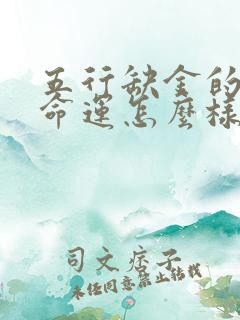 五行缺金的
命運怎麼樣
司文痞子
未经同意禁止转载